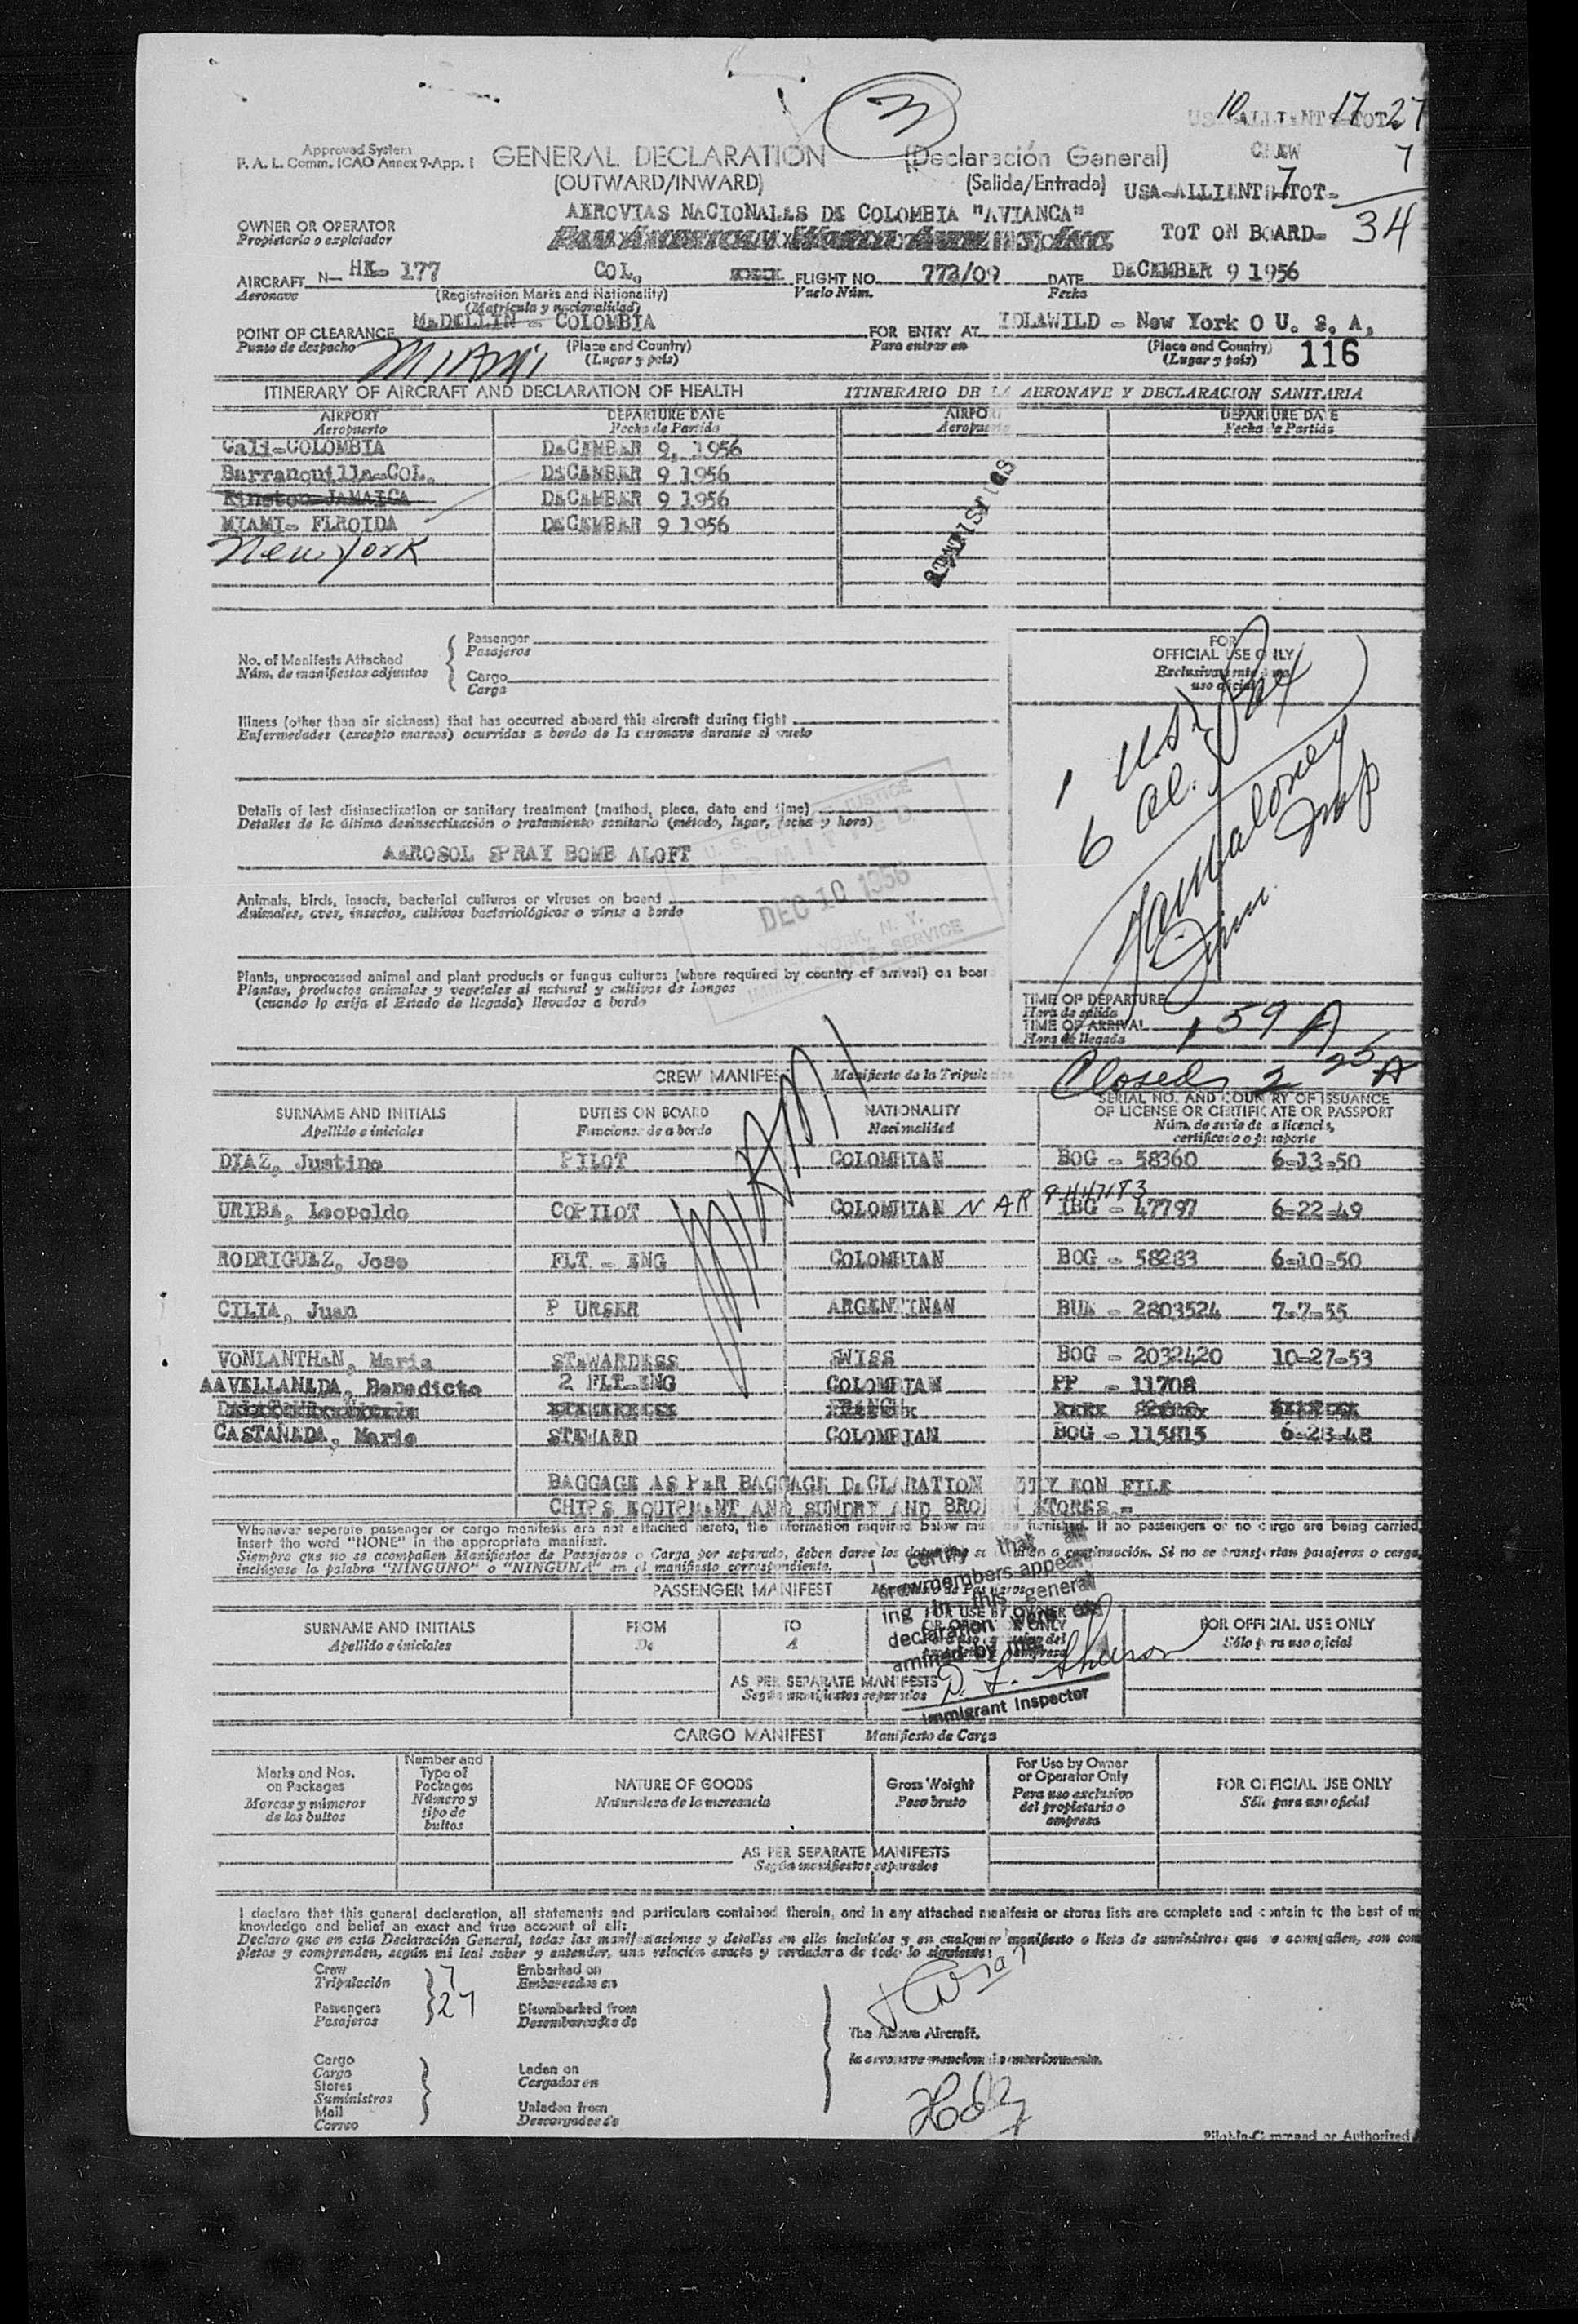 3
10 17 27
Approved System
P. A. L. Comm. ICAO Annex 9-App. I
GENERAL DECLARATION (Declaración General)
CREW 7
(OUTWARD/INWARD) (Salida/Entrada)
USA-ALLIENT 7 TOT-
AEROVIAS NACIONALES DE COLOMBIA "AVIANCA"
OWNER OR OPERATOR
Propietario o explotador
TOT ON BOARD- 34
AIRCRAFT N- HK- 177 COL. FLIGHT NO. 772/09 DATE DECEMBER 9 1956
Aeronave (Registration Marks and Nationality) Vuelo Núm. Fecha
(Matrícula y nacionalidad)
POINT OF CLEARANCE MEDELLIN - COLOMBIA FOR ENTRY AT IDLAWILD - New York O U. S. A.
Punto de despacho (Place and Country) Para entrar en (Place and Country)
MIAMI (Lugar y país) (Lugar y país) 116
ITINERARY OF AIRCRAFT AND DECLARATION OF HEALTH ITINERARIO DE LA AERONAVE Y DECLARACION SANITARIA
AIRPORT DEPARTURE DATE AIRPO DEPARTURE DATE
Aeropuerto Fecha de Partida Aeropuerto Fecha de Partida
Cali-COLOMBIA DECEMBER 9, 1956
Barranquilla-COL. DECEMBER 9 1956
Kinston-JAMAICA DECEMBER 9 1956
MIAMI- FLROIDA DECEMBER 9 1956
New York
No. of Manifests Attached
Núm. de manifiestos adjuntos
Passenger
Pasajeros
Cargo
Carga
FOR
OFFICIAL USE ONLY
Exclusivamente para
uso oficial
Illness (other than air sickness) that has occurred aboard this aircraft during flight
Enfermedades (excepto mareos) ocurridas a bordo de la aeronave durante el vuelo
Details of last disinsectization or sanitary treatment (method, place, date and time)
Detalles de la última desinsectización o tratamiento sanitario (método, lugar, fecha y hora)
AEROSOL SPRAY BOMB ALOFT
U. S. DEPT. OF JUSTICE
ADMITTED
DEC 10 1956
NEW YORK, N. Y.
IMMIG. & NATZ. SERVICE
1 USC
6 al.
Animals, birds, insects, bacterial cultures or viruses on board
Animales, aves, insectos, cultivos bacteriológicos o virus a bordo
Plants, unprocessed animal and plant products or fungus cultures (where required by country of arrival) on boar
Plantas, productos animales y vegetales al natural y cultivos de hongos
(cuando lo exija el Estado de llegada) llevados a bordo
TIME OF DEPARTURE
Hora de salida
TIME OF ARRIVAL 1 59 A
Hora de llegada
Closed 2 25 A
CREW MANIFEST Manifiesto de la Tripulación
SURNAME AND INITIALS DUTIES ON BOARD NATIONALITY SERIAL NO. AND COUNTRY OF ISSUANCE
OF LICENSE OR CERTIFICATE OR PASSPORT
Apellido e iniciales Funciones de a bordo Nacionalidad Núm. de serie de la licencia,
certificado o pasaporte
MIAMI
DIAZ, Justino PILOT COLOMBIAN BOG - 58360 6-13-50
URIBA, Leopoldo COPILOT COLOMBIAN N AR IBG - 47797 6-22-49
RODRIGUEZ, Jose FLT - ENG COLOMBIAN BOG - 58283 6-10-50
CILIA, Juan P URSER ARGENTINAN BUE - 2803524 7-7-55
VONLANTHEN, Maria STEWARDESS SWISS BOG - 2032420 10-27-53
AAVELLANEDA, Benedicto 2 FLT-ENG COLOMBIAN PP - 11708
CASTANEDA, Mario STEWARD COLOMBIAN BOG - 115815 6-28-48
BAGGAGE AS PER BAGGAGE DECLARATION
CHIPS EQUIPMENT AND SUNDRY AND BROKEN STORES.-
Whenever separate passenger or cargo manifests are not attached hereto, the information required below must be furnished. If no passengers or no cargo are being carried,
insert the word "NONE" in the appropriate manifest.
Siempre que no se acompañen Manifiestos de Pasajeros o Carga por separado, deben darse los datos que se indican a continuación. Si no se transportan pasajeros o carga,
inclúyase la palabra "NINGUNO" o "NINGUNA" en el manifiesto correspondiente.
I certify that all
crewmembers appear-
ing in this general
declaration were ex-
amined by me
D. L. Sharon
Immigrant Inspector
PASSENGER MANIFEST Manifiesto de Pasajeros
SURNAME AND INITIALS FROM TO FOR USE BY OWNER OR OPERATOR ONLY FOR OFFICIAL USE ONLY
Apellido e iniciales De A Sólo para uso oficial
AS PER SEPARATE MANIFESTS
Según manifiestos separados
CARGO MANIFEST Manifiesto de Carga
Marks and Nos.
on Packages
Marcas y números
de los bultos
Number and
Type of
Packages
Número y
tipo de
bultos
NATURE OF GOODS
Naturaleza de la mercancía
Gross Weight
Peso bruto
For Use by Owner
or Operator Only
Para uso exclusivo
del propietario o
empresa
FOR OFFICIAL USE ONLY
Sólo para uso oficial
AS PER SEPARATE MANIFESTS
Según manifiestos separados
I declare that this general declaration, all statements and particulars contained therein, and in any attached manifests or stores lists are complete and contain to the best of m
knowledge and belief an exact and true account of all:
Declaro que en esta Declaración General, todas las manifestaciones y detalles en ella incluidos y en cualquier manifiesto o lista de suministros que se acompañen, son com
pletos y comprenden, según mi leal saber y entender, una relación exacta y verdadera de todo lo siguiente:
Crew 7 Embarked on
Tripulación Embarcados en
Passengers 27 Disembarked from
Pasajeros Desembarcados de
The Above Aircraft.
la aeronave mencionada anteriormente.
Cargo
Carga
Stores
Suministros
Mail
Correo
Laden on
Cargados en
Unladen from
Descargados de
Pilot-in-Command or Authorized